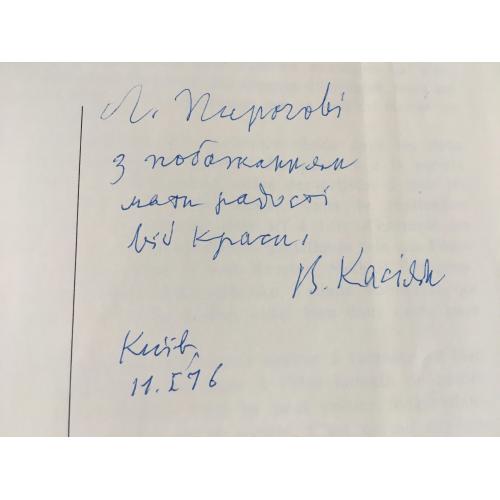 Л. Пирогові
з побажанням
мати радості
від краси,
В. Касіян
Київ,
11.І 76